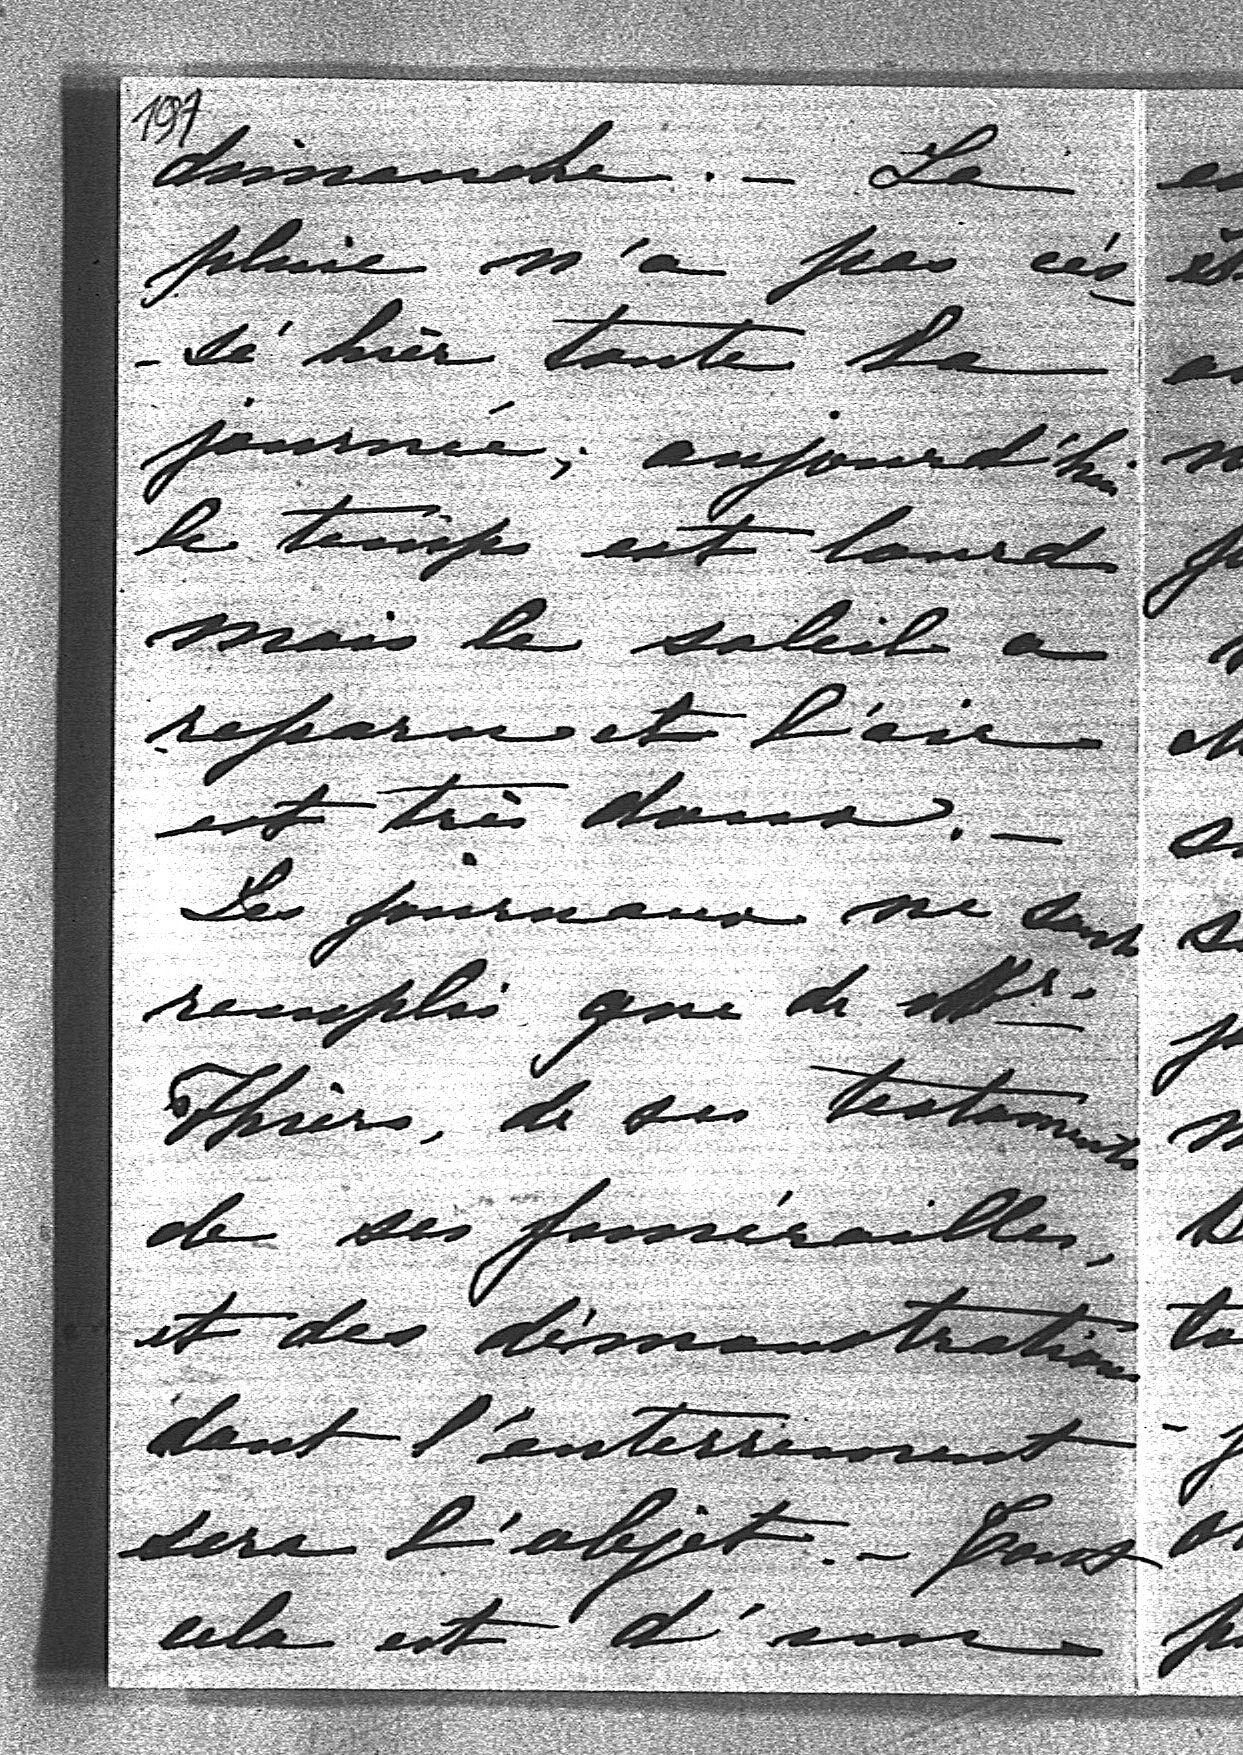 197
dimanche. - La
pluie n'a pas cés
- sé hièr toute la
journée; aujourd'hui
le temps est lourd
mais le soleil a
reparu et l'air
est très doux. -
Les journaux ne sont
remplis que de Mr.
Thiers, de ses testaments
de ses funérailles,
et des démonstrations
dont l'enterrement
sera l'objet. - Tout
cela est d'une